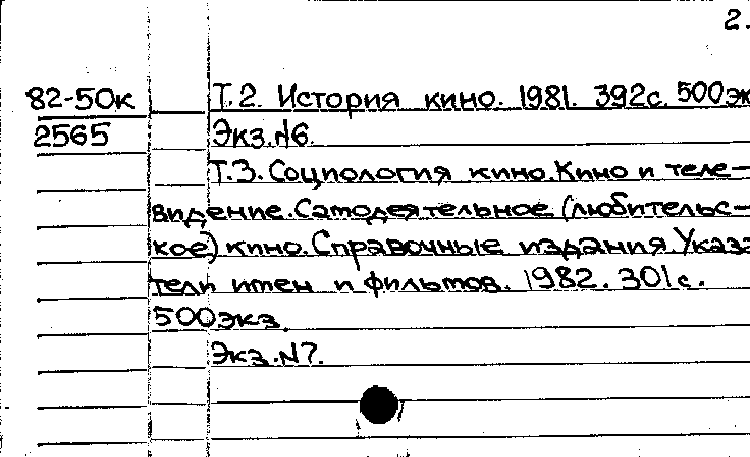 2.
82-50к Т.2. История кино. 1981. 392с. 500эк
2565 Экз.№6.
Т.3. Социология кино. Кино и теле-
видение. Самодеятельное (любительс-
кое) кино. Справочные издания. Указа
тели имен и фильмов. 1982. 301с.
500экз.
Экз.№7.